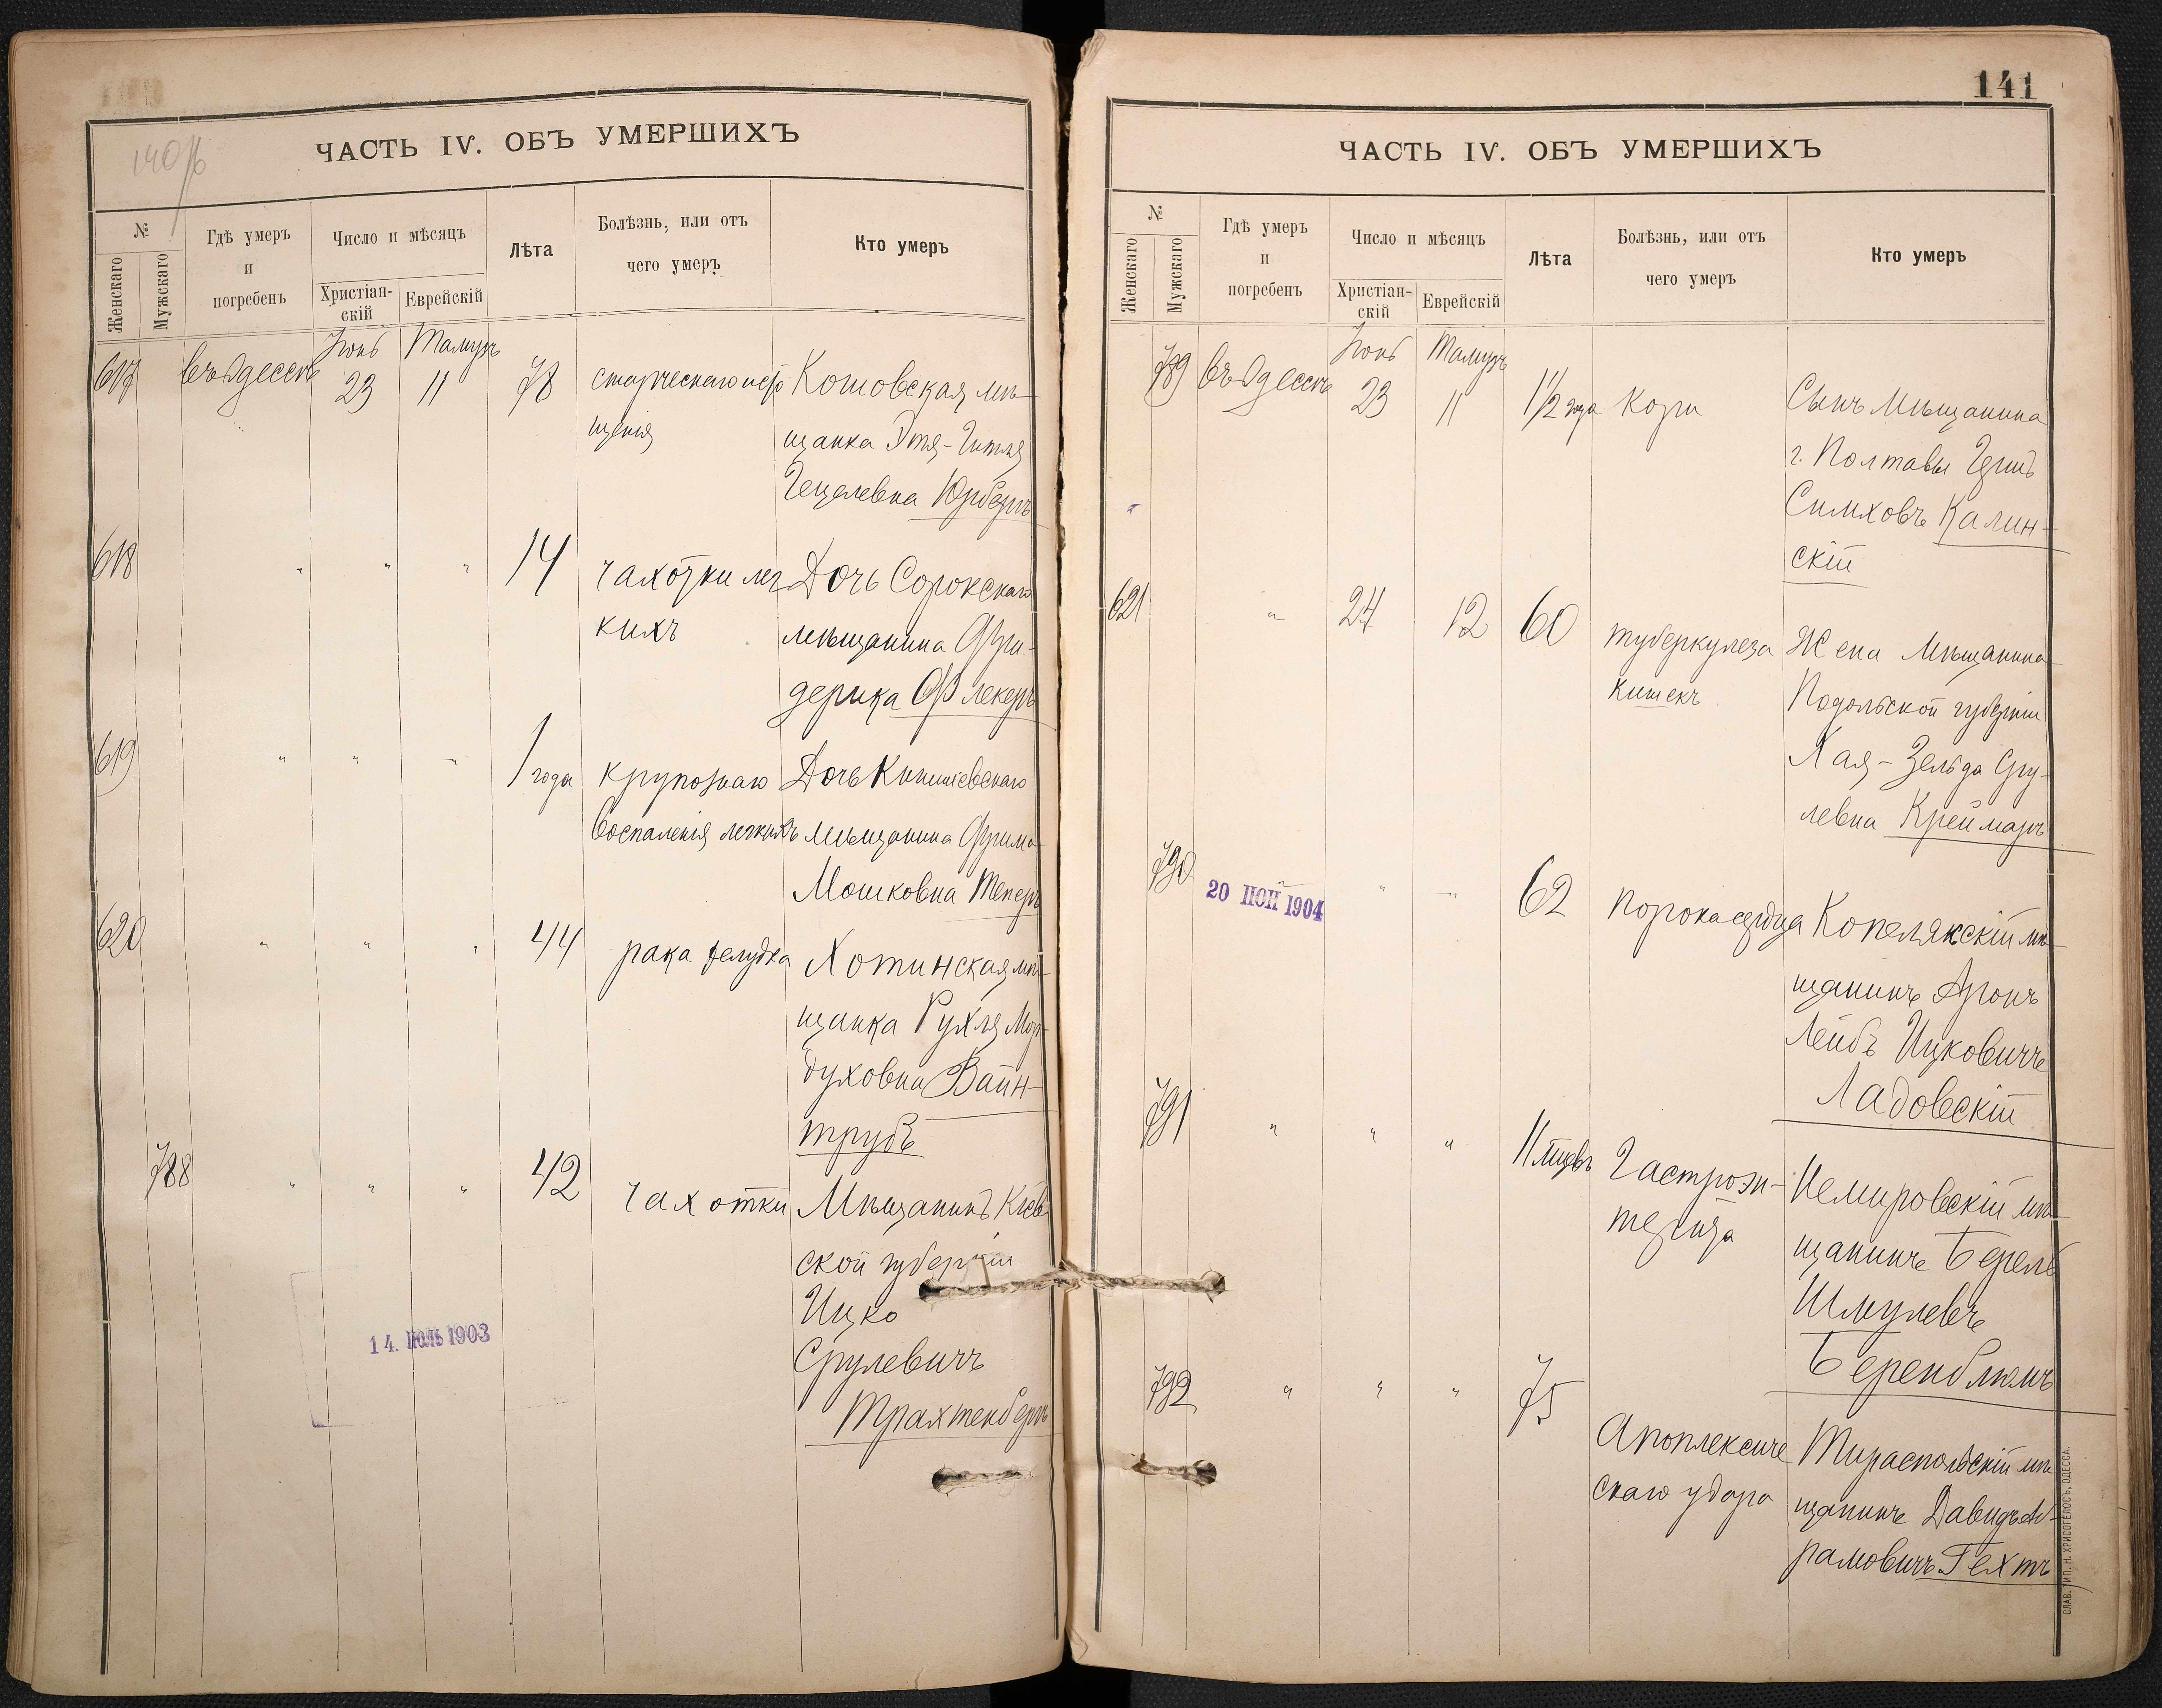 140/б
ЧАСТЬ IV. ОБЪ УМЕРШИХЪ
№
Женскаго
Мужскаго
Гдѣ умеръ
и
погребенъ
Число и мѣсяцъ
Христіан-
скій
Еврейскій
Лѣта
Болѣзнь, или отъ
чего умеръ
Кто умеръ
617 въ Одессѣ Іюнь 23 Тамузъ 11 78
старческаго исто
щенія
Котовская мѣ-
щанка Этя-Гитля
Гецелевна Юрбергъ
618 " " " 14
чахотки лег
кихъ
Дочь Сорокскаго
мѣщанина Фри-
дерика Флекеръ
619 " " " 1 года
крупознаго
воспаленія легкихъ
Дочь Кишиневскаго
мѣщанина Фрима
Мошковна Теперъ
620 " " " 44
рака желудка
Хотинская мѣ-
щанка Рухля Мор-
духовна Вайн-
трубъ
788 " " " 42
чахотки
Мѣщанинъ Кіев
ской губерніи
Ицко
Срулевичъ
Трахтенбергъ
14. ІЮЛЬ 1903
141
ЧАСТЬ IV. ОБЪ УМЕРШИХЪ
№
Женскаго
Мужскаго
Гдѣ умеръ
и
погребенъ
Число и мѣсяцъ
Христіан-
скій
Еврейскій
Лѣта
Болѣзнь, или отъ
чего умеръ
Кто умеръ
789 въ Одессѣ Іюнь 23 Тамузъ 11 1½ года
кори
Сынъ мѣщанина
г. Полтавы
Симховъ Калин-
скій
621 " 24 12 60
туберкулеза
кишекъ
Жена мѣщанина
Подольской губерніи
Хая-Зельда Сру-
левна Креймаръ
790 " " " 62
20 ІЮН 1904
порока сердца
Копелякскій мѣ-
щанинъ Аронъ
Лейбъ Ицковичъ
Ладовскій
791 " " " 11 мцевъ
Гастроэн-
терита
Немировскій мѣ-
щанинъ Берель
Шмулевъ
Беренблюмъ
792 " " " 75
Апоплексиче
скаго удара
Тираспольскій мѣ
щанинъ Давидъ Аб-
рамовичъ Гехтъ
СЛАВ. ТИП. Н. ХРИСОГЕЛОСЪ, ОДЕССА.